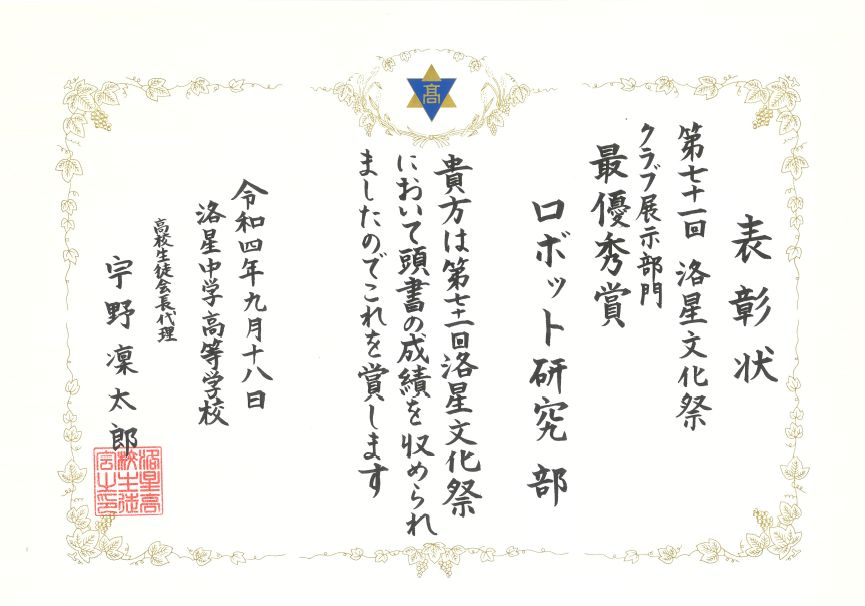 高
表彰状
第七十一回 洛星文化祭
クラブ展示部門
最優秀賞
ロボット研究部
貴方は第七十一回洛星文化祭
において頭書の成績を収められ
ましたのでこれを賞します
令和四年九月十八日
洛星中学高等学校
高校生徒会長代理
宇野凜太郎
洛星高
校生徒
会之印